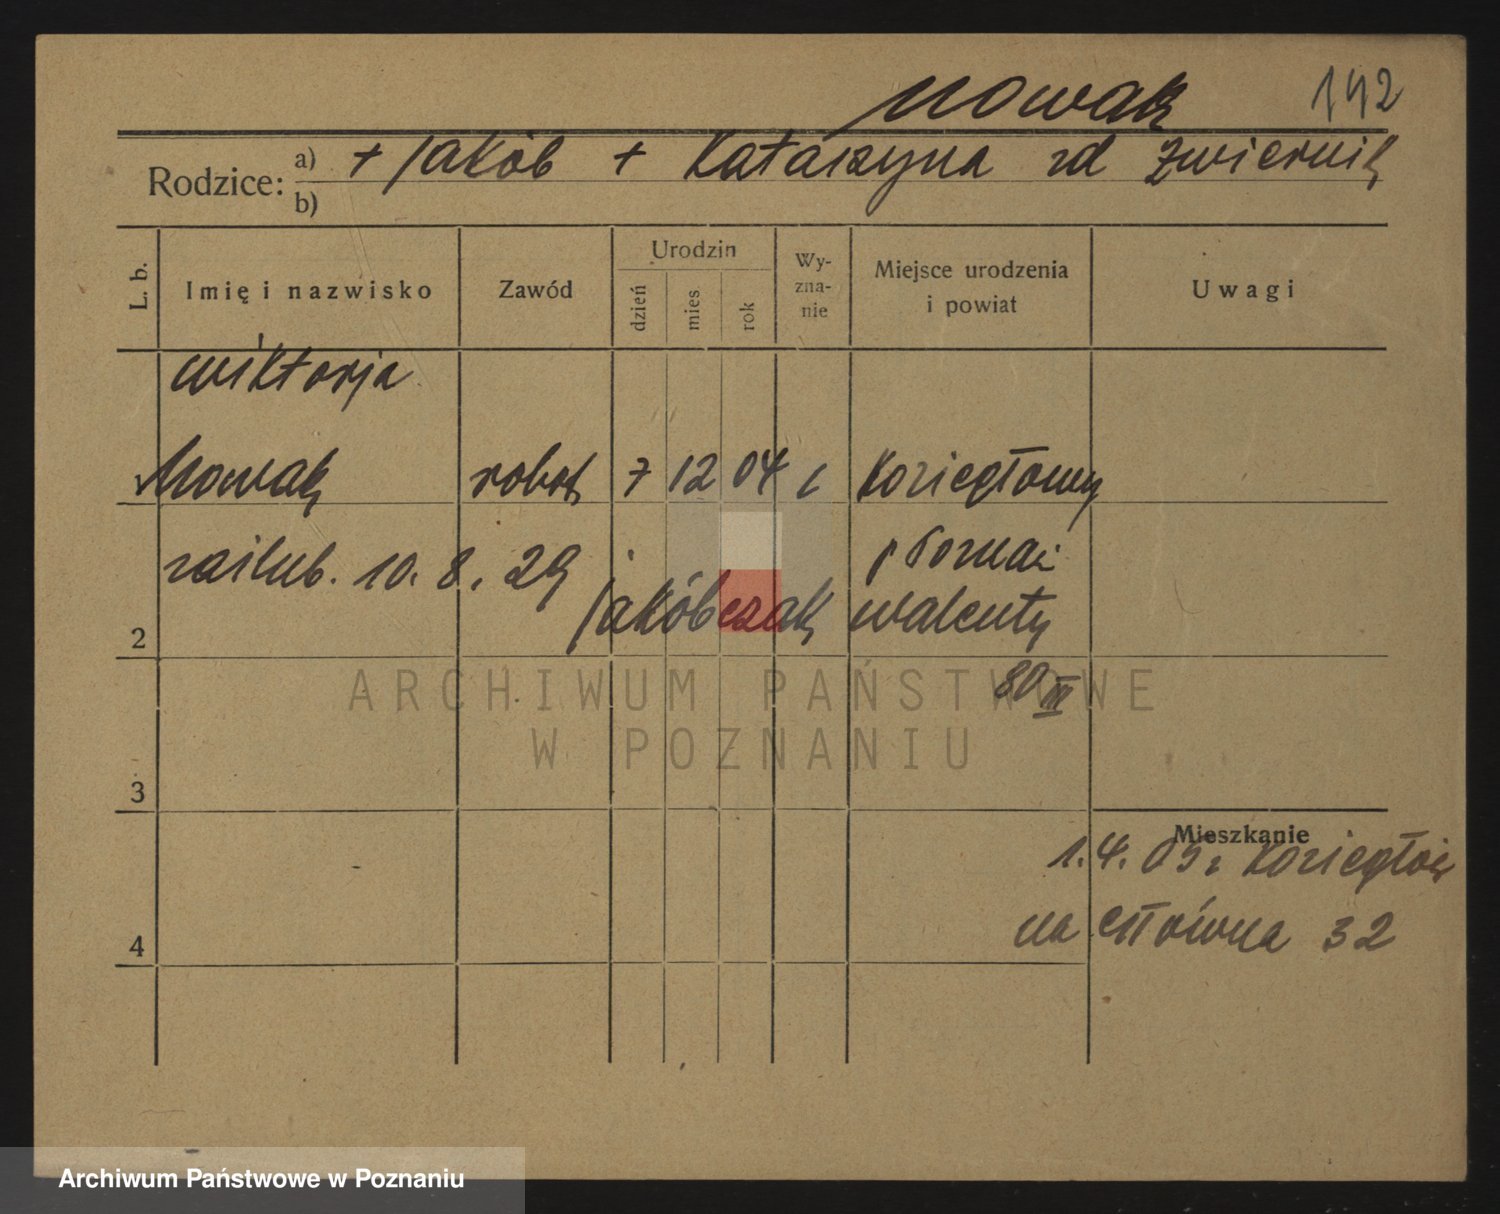 Nowak 142
Rodzice: a) + Jakób + Katarzyna zd Zwiernik
b)
L. b. Imię i nazwisko Zawód Urodzin dzień mies. rok Wyznanie Miejsce urodzenia i powiat Uwagi
Wiktorja
1 Nowak robot 7 12 04 k Koziegłowy
zaślub. 10. 8. 29 p Poznań
2 Jakóbczak Walenty
80 III
ARCHIWUM PAŃSTWOWE
W POZNANIU
3
Mieszkanie
1. 4. 05 z Koziegłow
4 na Główna 32
Archiwum Państwowe w Poznaniu